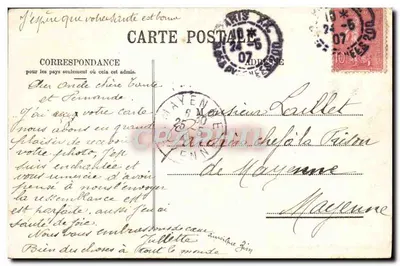 J'espère que votre santé est bonne
CARTE POSTALE
CORRESPONDANCE
pour les pays seulement où cela est admis.
ADRESSE
PARIS
24-5
07
10
MAYENNE
25
Cher Oncle chère Tante
et Fernande
J'ai reçu votre carte
nous avons eu un grand
plaisir de recevoir
votre photo, j'en
suis enchantée et
vous remercie d'avoir
pensé à nous l'envoyer
la ressemblance est
parfaite, aussi j'en ai
sauté de joie
Nous vous embrassons de
Juliette
Bien des choses à tout le monde
Monsieur Laillet
chef à la Prison
de Mayenne
Mayenne